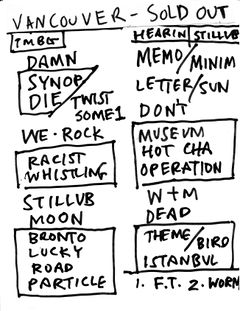 VANCOUVER - SOLD OUT
TMBG
DAMN
SYNOP
DIE / TWIST
SOME1
WE · ROCK
RACIST
WHISTLING
STILLUB
MOON
BRONTO
LUCKY
ROAD
PARTICLE
HEARIN STILLUB
MEMO/MINIM
LETTER/SUN
DON'T
MUSEUM
HOT CHA
OPERATION
W+M
DEAD
THEME/BIRD
ISTANBUL
1. F.T. 2. WORM